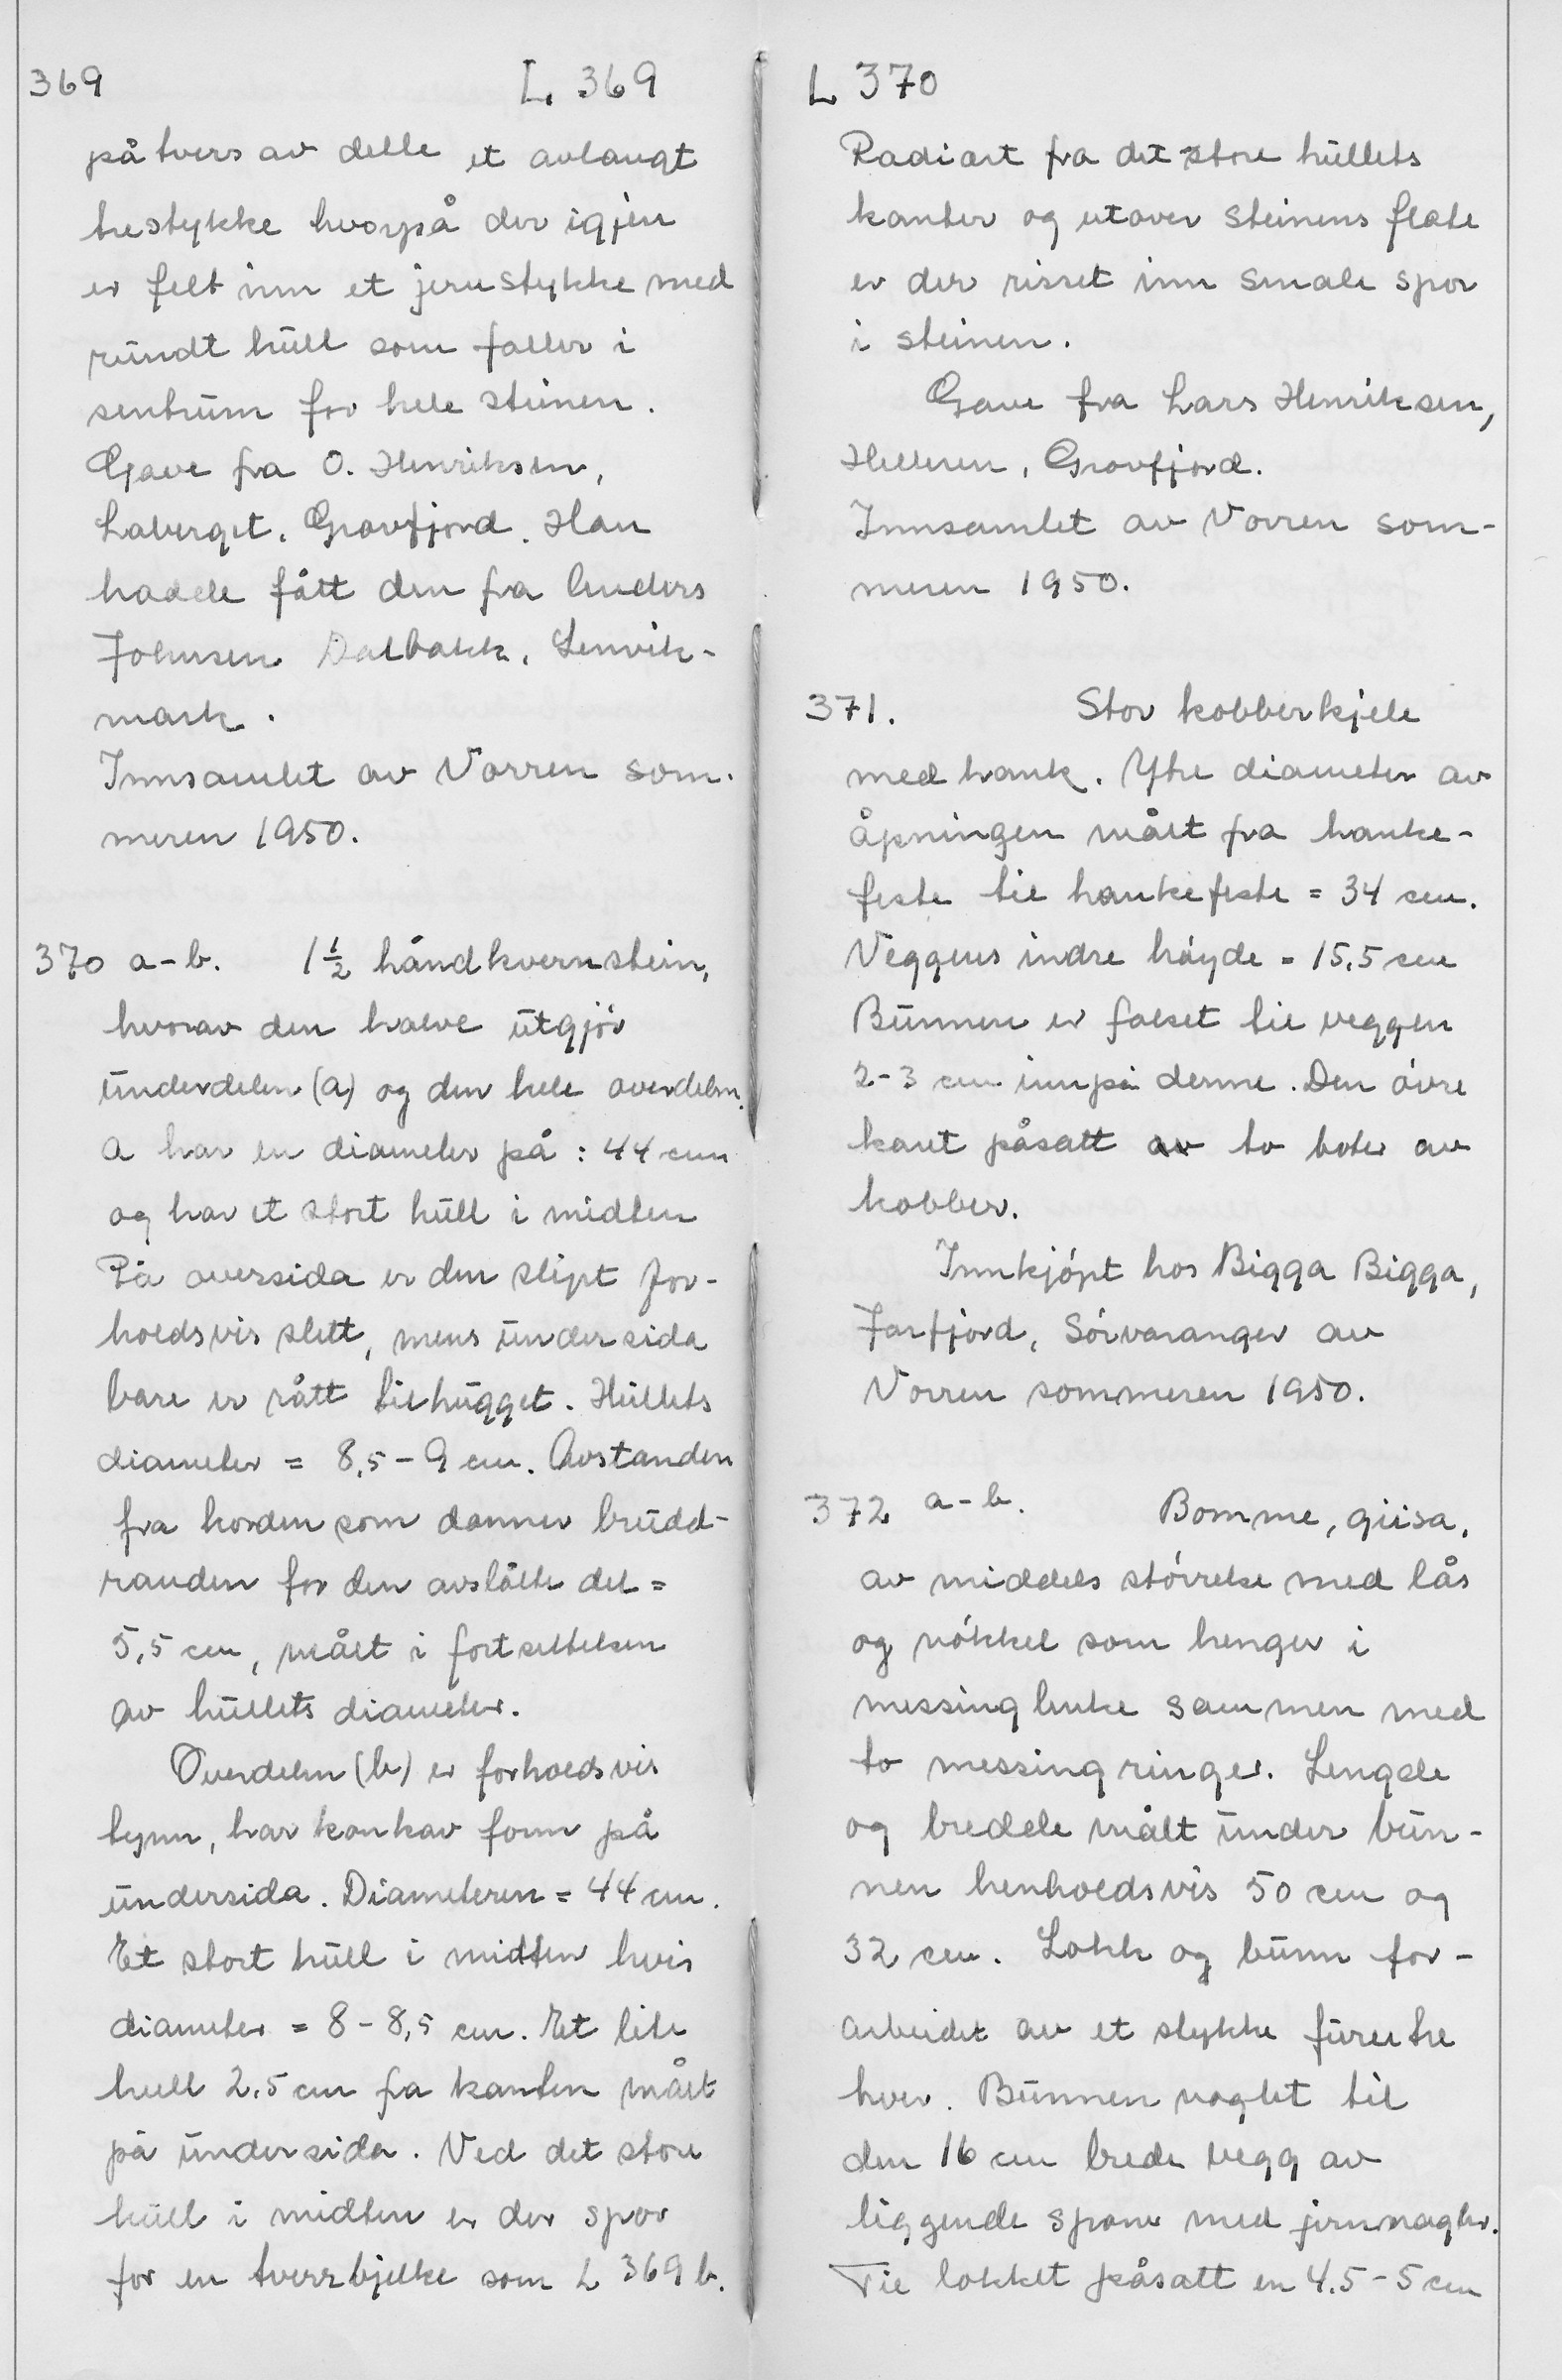 369 L. 369
på tvers av dette et avlangt
trestykke hvorpå der igjen
er felt inn et jernstykke med
rundt hull som faller i
sentrum for hele steinen.
Gave fra O. Henriksen,
Laberget, Gravfjord. Han
hadde fått den fra Anders
Johnsen Dalbakk, Lenvik-
mark.
Innsamlet av Vorren som-
meren 1950.
370 a-b. 1½ håndkvernstein,
hvorav den halve utgjör
underdelen (a) og den hele overdelen.
a har en diameter på: 44 cm
og har et stort hull i midten
På oversida er den slipt for-
holdsvis slett, mens undersida
bare er rått tilhugget. Hullets
diameter = 8,5 - 9 cm. Avstanden
fra korden som danner brudd-
randen for den avslåtte del =
5,5 cm, målt i fortsettelsen
av hullets diameter.
Overdelen (b) er forholdsvis
tynn, har konkav form på
undersida. Diameteren = 44 cm.
Et stort hull i midten hvis
diameter = 8 - 8,5 cm. Et lite
hull 2,5 cm fra kanten målt
på undersida. Ved det store
hull i midten er der spor
for en tverrbjelke som L 369 b.
L 370
Radiært fra det store hullets
kanter og utover steinens flate
er der risset inn smale spor
i steinen.
Gave fra Lars Henriksen,
Helleren, Gravfjord.
Innsamlet av Vorren som-
meren 1950.
371. Stor kobberkjele
med hank. Ytre diameter av
åpningen målt fra hanke-
feste til hankefeste = 34 cm.
Veggens indre höyde = 15,5 cm
Bunnen er falset til veggen
2-3 cm innpå denne. Den övre
kant påsatt av to böter av
kobber.
Innkjöpt hos Bigga Bigga,
Jarfjord, Sörvaranger av
Vorren sommeren 1950.
372 a-b. Bomme, giisa,
av middels störrelse med lås
og nökkel som henger i
messinglenke sammen med
to messingringer. Lengde
og bredde målt under bun-
nen henholdsvis 50 cm og
32 cm. Lokk og bunn for-
arbeidet av et stykke furutre
hver. Bunnen naglet til
den 16 cm brede vegg av
liggende spone med jernnagler.
Til lokket påsatt en 4,5 - 5 cm